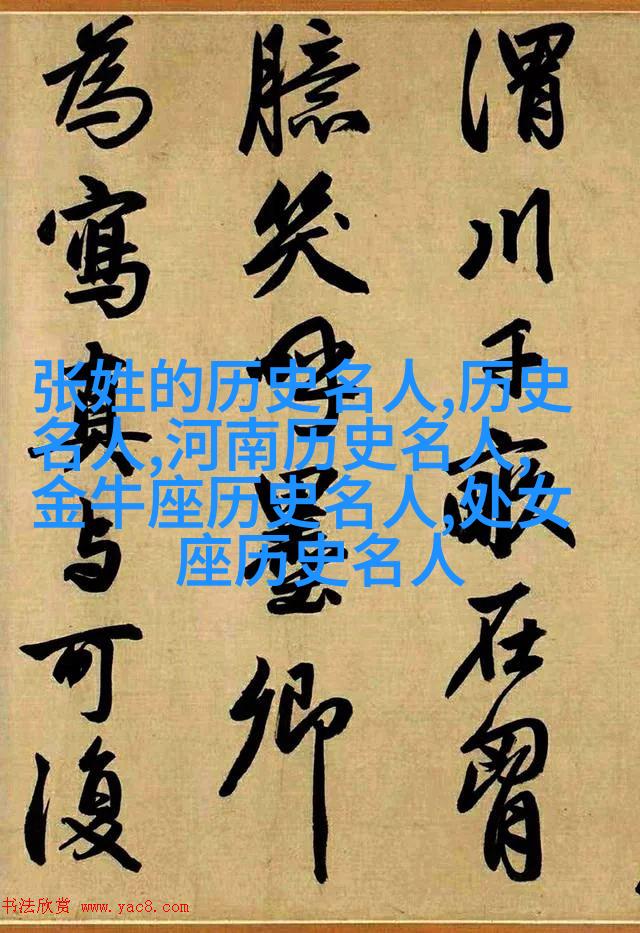 渭川千畝在胷
臆笑呼墨卿
為寫真与可復
张姓的历史名人,历史
名人,河南历史名人,
金牛座历史名人,处女
座历史名人
书法欣赏 www.yac8.com